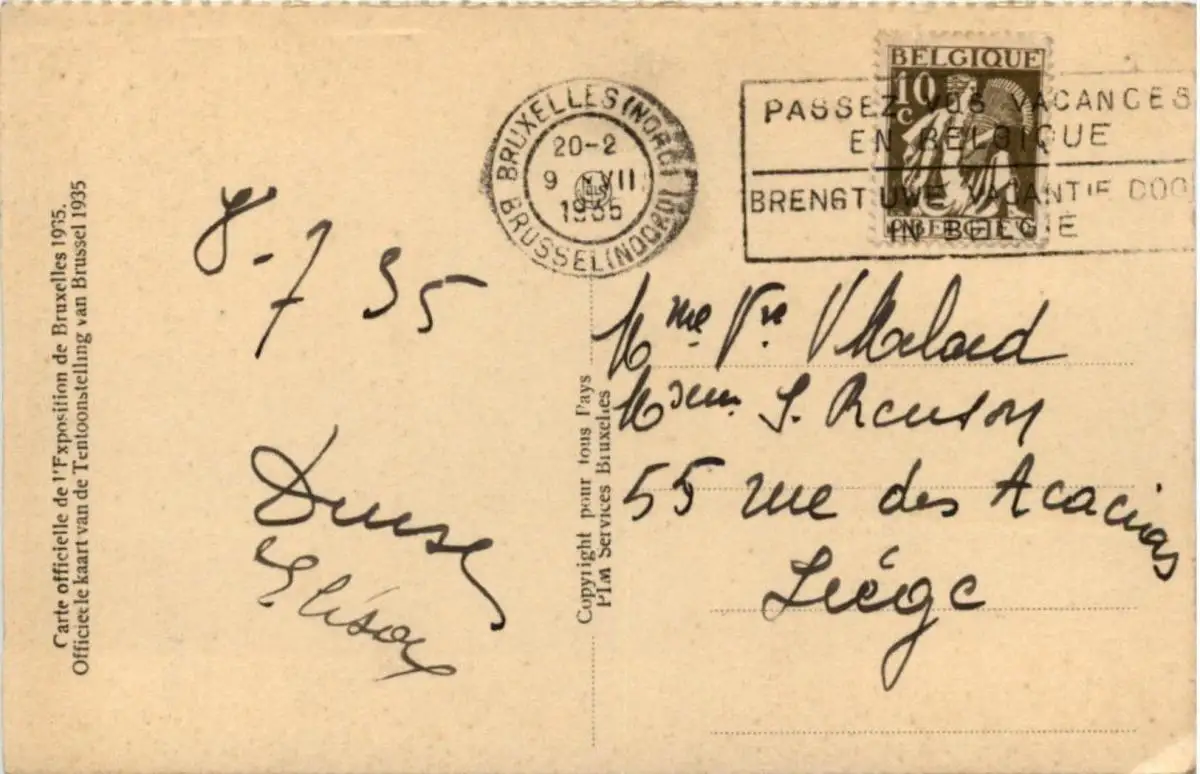 Carte officielle de l'Exposition de Bruxelles 1935.
Officieele kaart van de Tentoonstelling van Brussel 1935
8-7 35
BRUXELLES (NORD)
20-2
9 VII
1935
BRUSSEL (NOORD)
BELGIQUE
10
c
BELGIE
PASSEZ VOS VACANCES
EN BELGIQUE
BRENGT UWE VACANTIE DOO
IN BELGIË
Copyright pour tous Pays
PIM Services Bruxelles
Mme Vve V
55 rue des Acacias
Liège